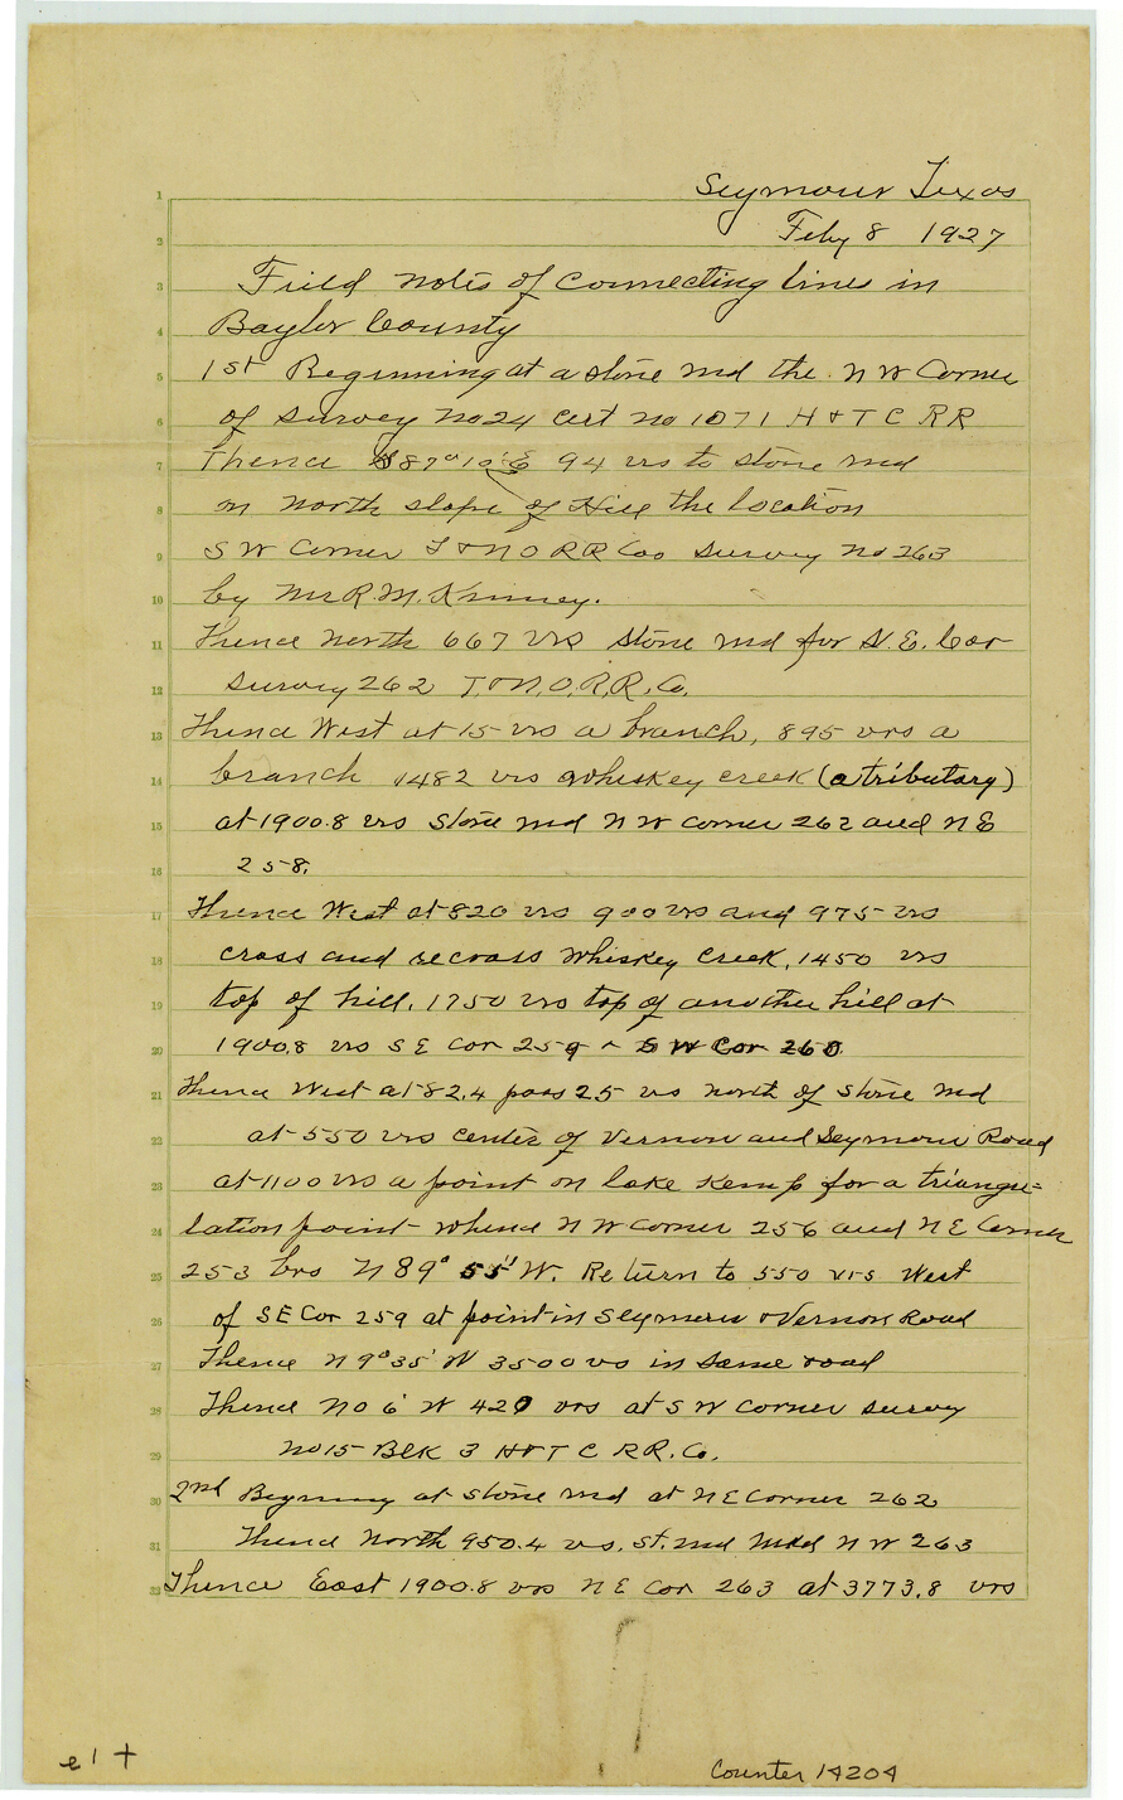 Seymour Texas
1
Feby 8 1927
2
3 Field notes of Connecting lines in
4 Baylor County
5 1st Beginning at a stone md the N W Corner
6 of survey No 24 Cert No 1071 H & T C RR
7 Thence S 87° 10' E 94 vrs to stone md
8 on north slope of Hill the location
9 S W Corner T & N O RR Coo Survey No 263
10 by Mr R. M. Kinney.
11 Thence North 667 vrs stone md for S. E. Cor
12 survey 262 T. & N. O. R.R. Co.
13 Thence West at 15 vrs a branch, 895 vrs a
14 branch 1482 vrs Whiskey creek (a tributary)
15 at 1900.8 vrs stone md N W corner 262 and N E
16 258.
17 Thence West at 820 vrs 900 vrs and 975 vrs
18 cross and recross Whiskey Creek, 1450 vrs
19 top of hill, 1750 vrs top of another hill at
20 1900.8 vrs S E Cor 259 S W Cor 260.
21 Thence West at 82.4 pass 25 vrs north of stone md
22 at 550 vrs center of Vernon and Seymour Road
23 at 1100 vrs a point on lake Kemp for a triangu=
24 lation point whence N W corner 256 and N E Corner
25 253 brs N 89° 55' W. Return to 550 vrs West
26 of S E Cor 259 at point in Seymour & Vernon Road
27 Thence N 9° 35' W 3500 vs in same road
28 Thence N 0 6' W 420 vrs at S W corner survey
29 No 15 Blk 3 H & T C RR. Co.
30 2nd Beginning at stone md at N E Corner 262
31 Thence North 950.4 vs. st. md Mkd N W 263
32 Thence East 1900.8 vrs N E Cor 263 at 3773.8 vrs
e 1 +
Counter 14204